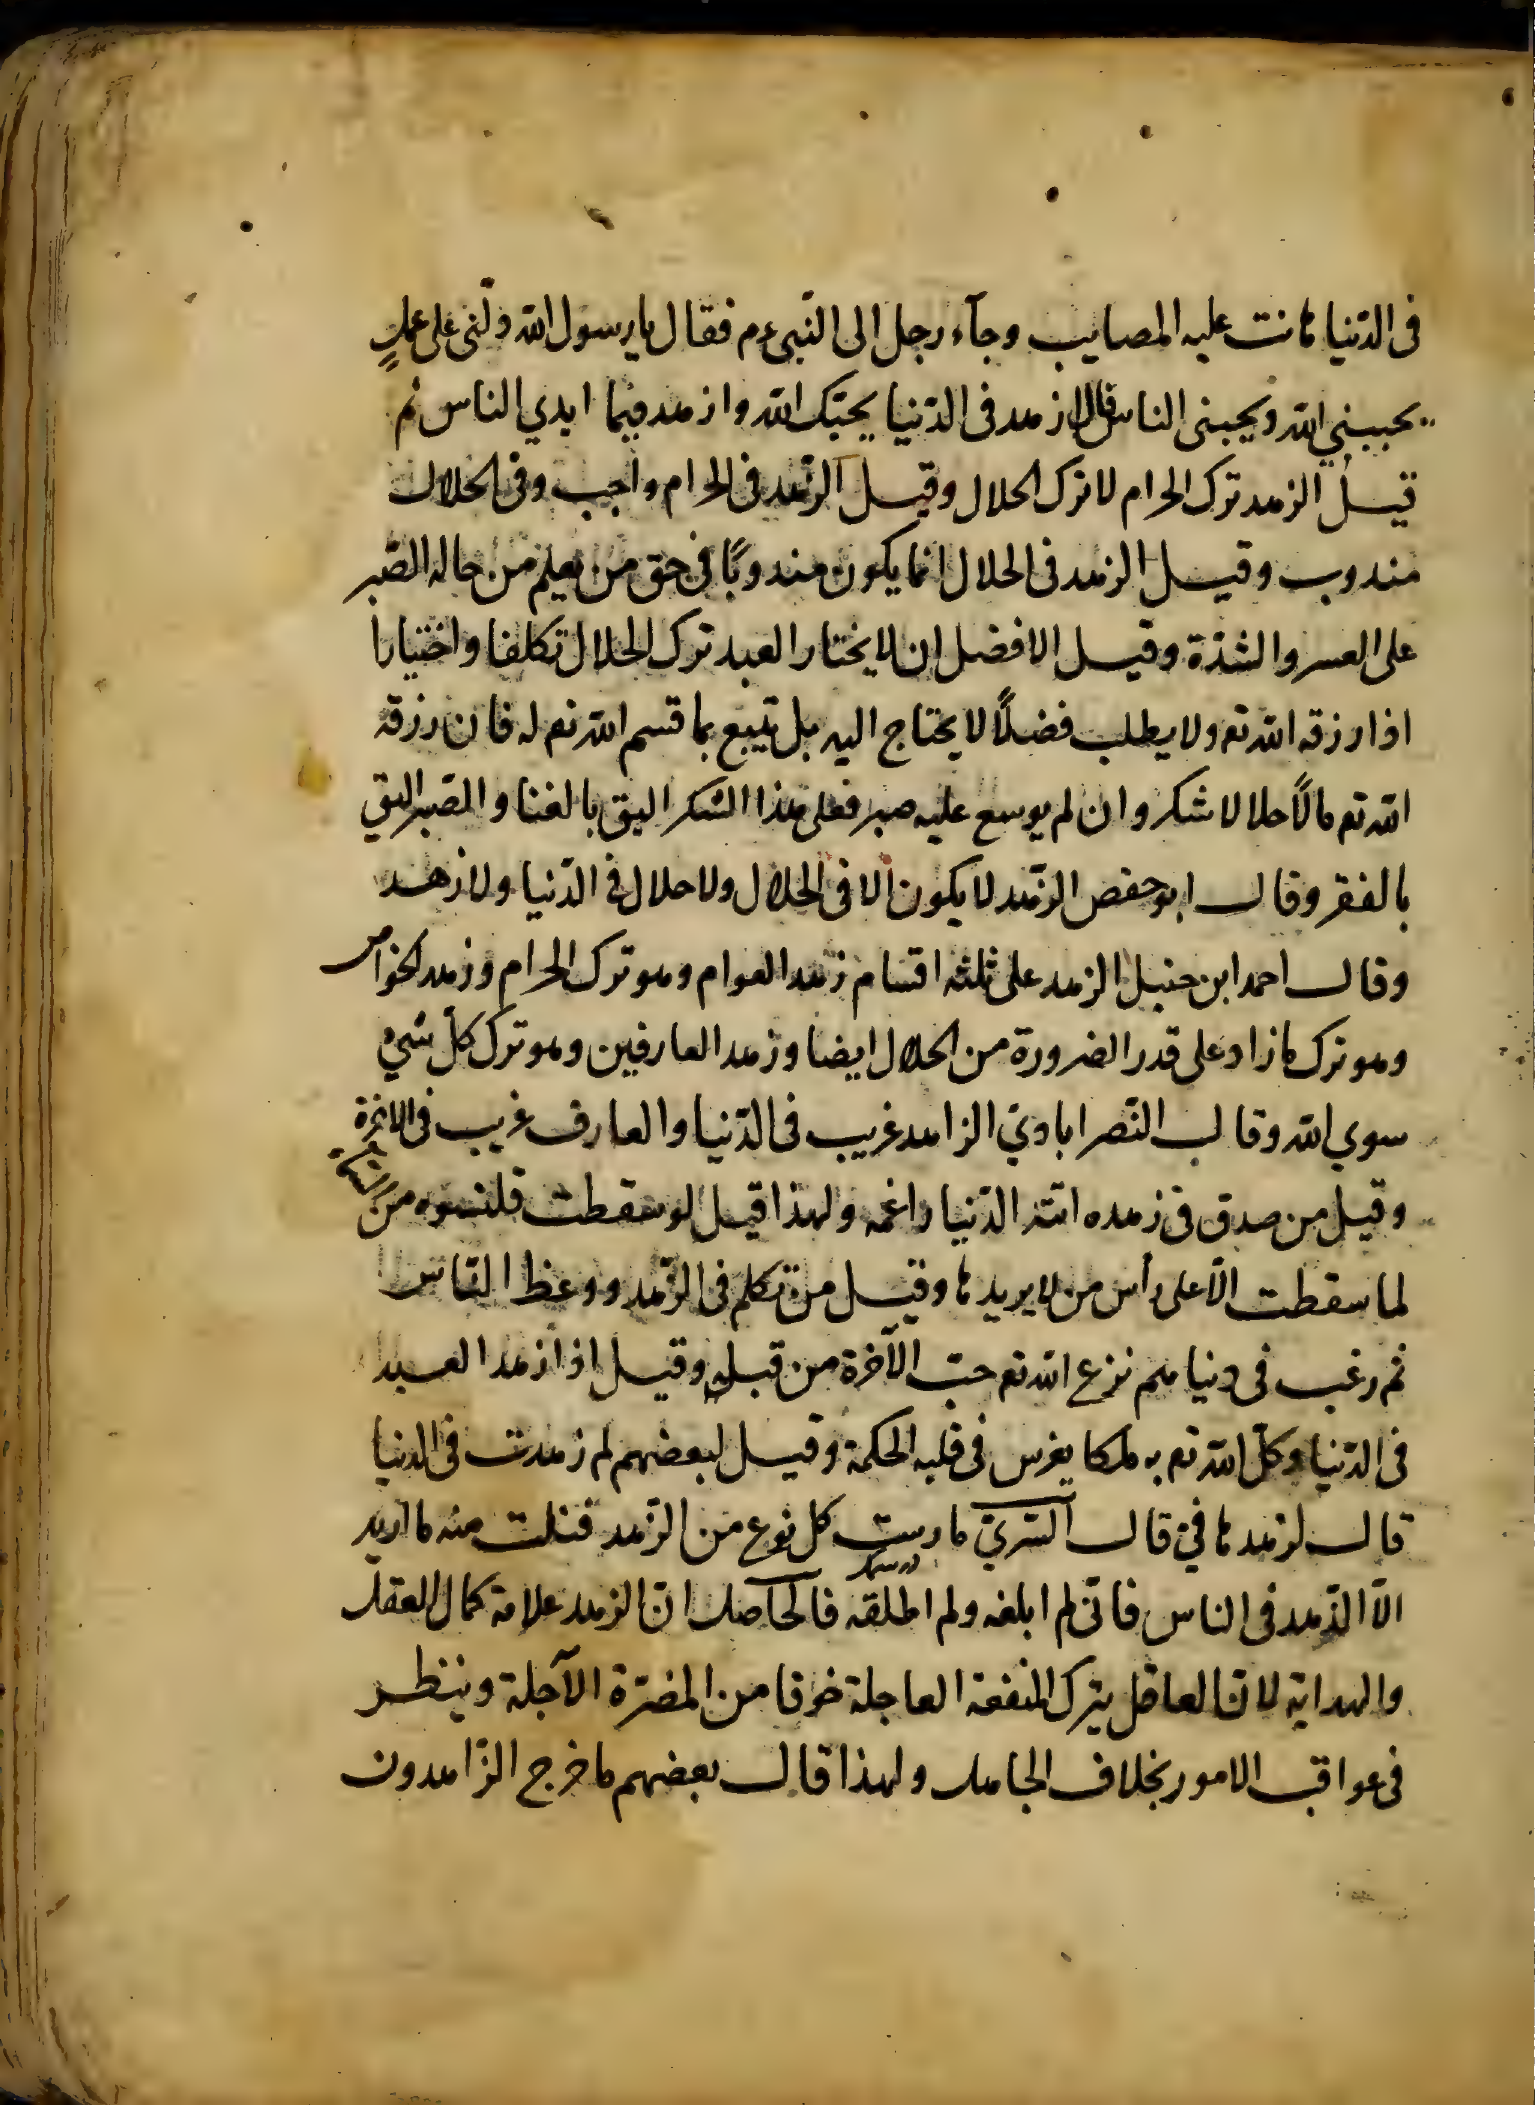 فى الدّنيا هانت عليه المصايب وجآء رجل الى النّبى عم فقال يا رسول الله دلّنى على عملٍ
يحببني الله ويحببنى الناس قال ازهد فى الدّنيا يحبّك الله وازهد فيما ايدي الناس ثم
قيل الزهد ترك الحرام لا ترك الحلال وقيل الزّهد فى الحرام واجب وفى الحلال
مندوب وقيل الزهد فى الحلال انما يكون مندوبًا فى حق من يعلم من حاله الصّبر
على العسر والشدّة وقيل الافضل ان لا يختار العبد ترك الحلال تكلفا واختيارا
اذا رزقه الله تع ولا يطلب فضلاً لا يحتاج اليه بل يتبع بما قسم الله تع له فان رزقه
الله تع مالاً حلالا شكر وان لم يوسع عليه صبر فعلى هذا الشكر اليق بالغنا والصّبر اليق
بالفقر وقال ابو حفص الزّهد لا يكون الا فى الحلال ولا حلال فى الدّنيا ولا زهد
وقال احمد ابن حنبل الزهد على ثلثه اقسام زهد العوام وهو ترك الحرام وزهد الخواص
وهو ترك ما زاد على قدر الضرورة من الحلال ايضا وزهد العارفين وهو ترك كلّ شيء
سوي الله وقال النّصر اباديّ الزاهد غريب فى الدّنيا والعارف غريب فى الاخرة
وقيل من صدق فى زهده اتته الدّنيا راغمه ولهذا قيل لو سقطت قلنسوه من السّماء
لما سقطت الّا على رأس من لا يريدها وقيل من تكلم فى الزّهد ووعظ النّاس
ثم رغب فى دنياهم نزع الله تع حبّ الآخرة من قبله وقيل اذا زهد العبد
فى الدّنيا وكلّ الله تع به ملكا يغرس فى قلبه الحكمة وقيل لبعضهم لم زهدت فى الدنيا
قال لزهدها فيّ قال السّريّ مارست كل نوع من الزّهد فنلت منه ما اريد
الّا الزّهد فى الناس فانّى لم ابلغه ولم اطلقه فالحاصل انّ الزهد علامة كمال العقل
والهداية لانّ العاقل يترك المنفعة العاجلة خوفا من المضرّة الآجلة وينظر
فى عواقب الامور بخلاف الجاهل ولهذا قال بعضهم ما خرج الزّاهدون